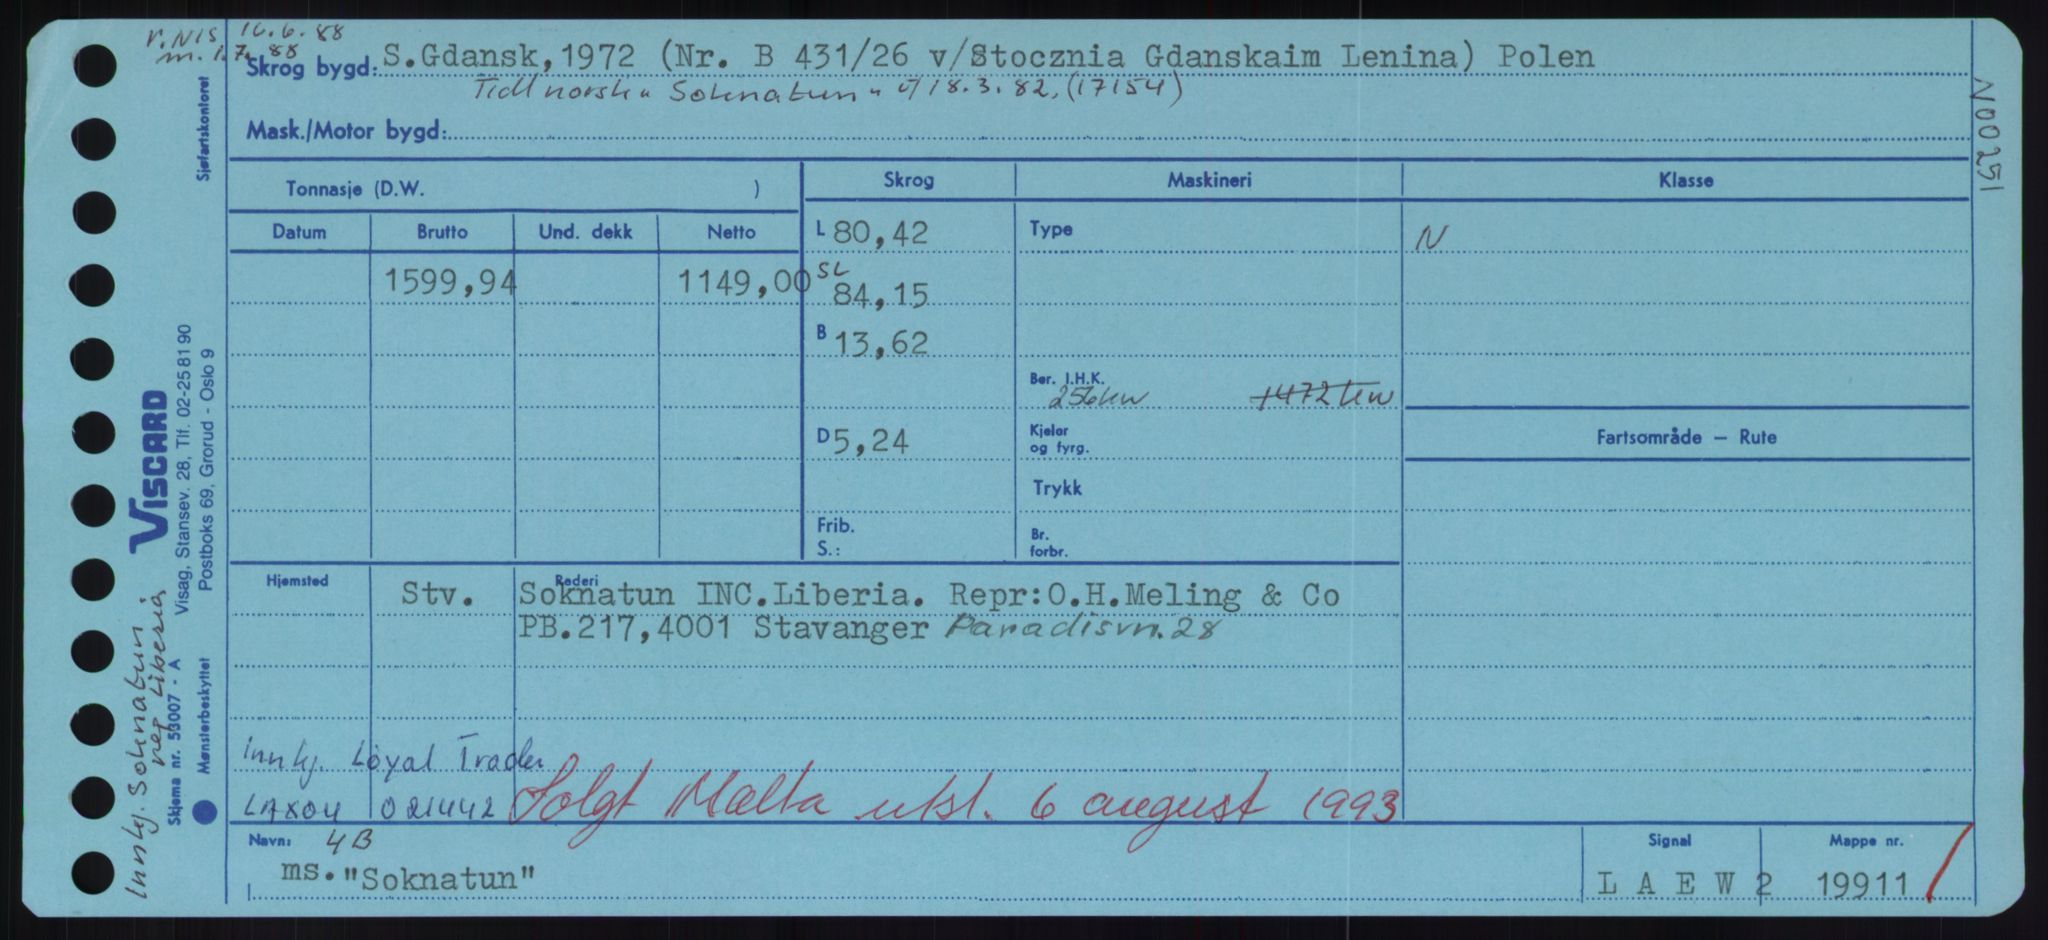 r. NIS 16.6.88
m. 1.7.88
Skrog bygd: S.Gdansk,1972 (Nr. B 431/26 v/Stocznia Gdanskaim Lenina) Polen
Tidl norsk "Soknatun" u/18.3.82.(17154)
Mask./Motor bygd:
N00251
Sjøfartskontoret
Tonnasje (D.W. )
Skrog Maskineri Klasse
Datum Brutto Und. dekk Netto
L 80,42 Type N
1599,94 1149,00 SL 84,15
B 13,62
Ber. I.H.K.
256kw 1472kw
D 5,24 Kjeler
og fyrg.
Fartsområde – Rute
Trykk
Frib.
S.:
Br.
forbr.
Hjemsted Rederi
Stv. Soknatun INC.Liberia. Repr:O.H.Meling & Co
PB.217,4001 Stavanger Paradisvn.28
innkj. Loyal Trader
LAXO4 021442 Solgt Malta utsl. 6 august 1993
Navn: 4B
ms."Soknatun"
Signal Mappe nr.
L A E W 2 19911 /
VISCARD
Visag, Stansev. 28, Tlf. 02-25 81 90
Postboks 69, Grorud - Oslo 9
Skjema nr. 53007 - A Mønsterbeskyttet
Innkj. Soknatun
reg Liberia